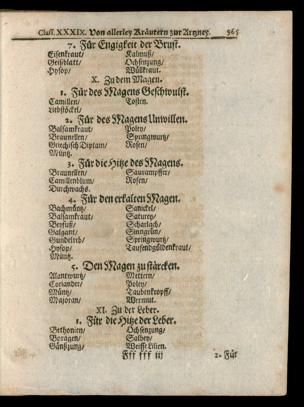 Class. XXXIX. Von allerley Kräutern zur Artzney. 965
7. Für Engigkeit der Brust.
Eisenkraut/ Kalmuß/
Geißblatt/ Ochsenzung/
Hysop/ Wüllkraut.
X. Zu dem Magen.
1. Für des Magens Geschwulst.
Camillen/ Tosten.
Liebstöckel/
2. Für des Magens Unwillen.
Balsamkraut/ Poley/
Braunellen/ Springwurtz/
Griechisch Diptam/ Rosen/
Müntz.
3. Für die Hitze des Magens.
Braunellen/ Saurampffer/
Camillenblum/ Rosen/
Durchwachs.
4. Für den erkalten Magen.
Bachmüntz/ Sanickel/
Balsamkraut/ Saturey/
Beyfuß/ Scharlach/
Galgant/ Sinngrün/
Gundelreb/ Springwurtz/
Hysop/ Tausendgüldenkraut/
Müntz.
5. Den Magen zu stärcken.
Alantwurtz/ Mettern/
Coriander/ Poley/
Müntz/ Taubenkropff/
Majoran/ Wermut.
XI. Zu der Leber.
1. Für die Hitze der Leber.
Bethonien/ Ochsenzung/
Boragen/ Salbey/
Gänßzung/ Weisse Lilien.
Fff fff iij 2. Für